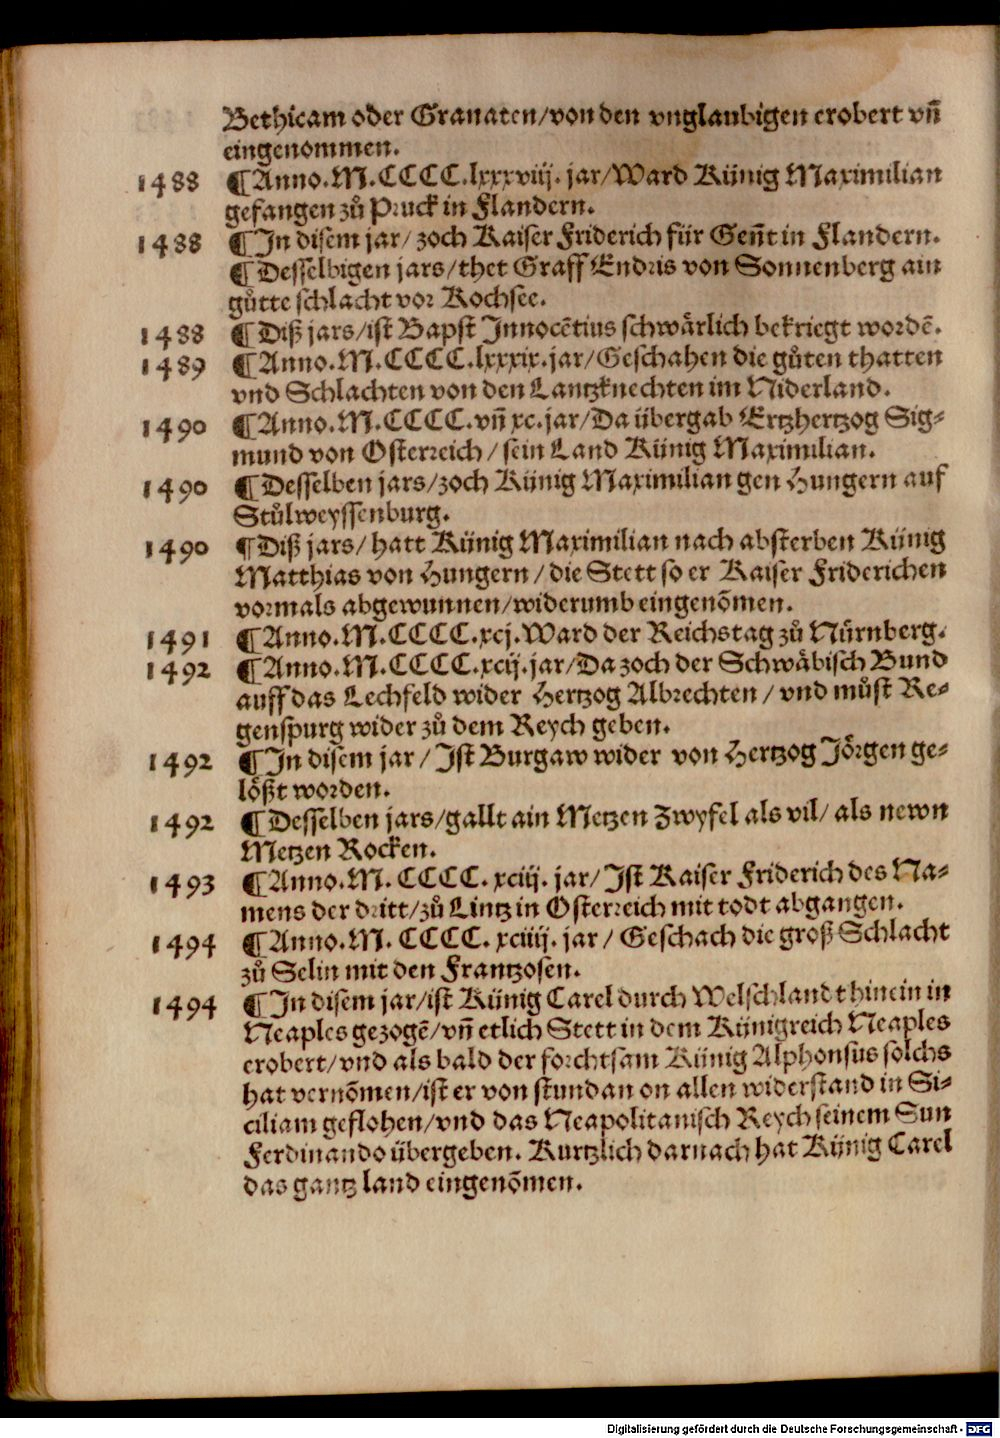 Bethicam oder Granaten/von den vnglaubigen erobert vñ
eingenommen.
1488 ¶Anno.M.CCCC.lxxxviij. jar/Ward Künig Maximilian
gefangen zů Pruck in Flandern.
1488 ¶In disem jar/ zoch Kaiser Friderich für Geñt in Flandern.
¶Desselbigen jars/thet Graff Endris von Sonnenberg ain
gůtte schlacht vor Kochsee.
1488 ¶Diß jars/ist Bapst Innocẽtius schwårlich bekriegt wordẽ.
1489 ¶Anno.M.CCCC.lxxxix.jar/Geschahen die gůten thatten
vnd Schlachten von den Lantzknechten im Niderland.
1490 ¶Anno.M.CCCC.vñ xc.jar/Da übergab Ertzhertzog Sig-
mund von Osterreich/sein Land Künig Maximilian.
1490 ¶Desselben jars/zoch Künig Maximilian gen Hungern auf
Stůlweyssenburg.
1490 ¶Diß jars/ hatt Künig Maximilian nach absterben Künig
Matthias von Hungern/die Stett so er Kaiser Friderichen
vormals abgewunnen/widerumb eingenõmen.
1491 ¶Anno.M.CCCC.xcj.Ward der Reichstag zů Nürnberg.
1492 ¶Anno.M.CCCC.xcij.jar/Da zoch der Schwäbisch Bund
auff das Lechfeld wider Hertzog Albrechten/vnd můst Re-
genspurg wider zů dem Reych geben.
1492 ¶In disem jar/Ist Burgaw wider von Hertzog Jörgen ge-
lößt worden.
1492 ¶Desselben jars/gallt ain Metzen Zwyfel als vil/ als newn
Metzen Rocken.
1493 ¶Anno.M.CCCC.xciij. jar/Ist Kaiser Friderich des Na-
mens der dritt/zů Lintz in Osterreich mit todt abgangen.
1494 ¶Anno.M.CCCC.xciiij. jar/Geschach die groß Schlacht
zů Selin mit den Frantzosen.
1494 ¶In disem jar/ist Künig Carel durch Welschlandt hinein in
Neaples gezogẽ/vñ etlich Stett in dem Künigreich Neaples
erobert/vnd als bald der forchtsam Künig Alphonsus solchs
hat vernõmen/ist er von stundan on allen widerstand in Si-
ciliam geflohen/vnd das Neapolitanisch Reych seinem Sun
Ferdinando übergeben. Kurtzlich darnach hat Künig Carel
das gantz land eingenõmen.
Digitalisierung gefördert durch die Deutsche Forschungsgemeinschaft - DFG